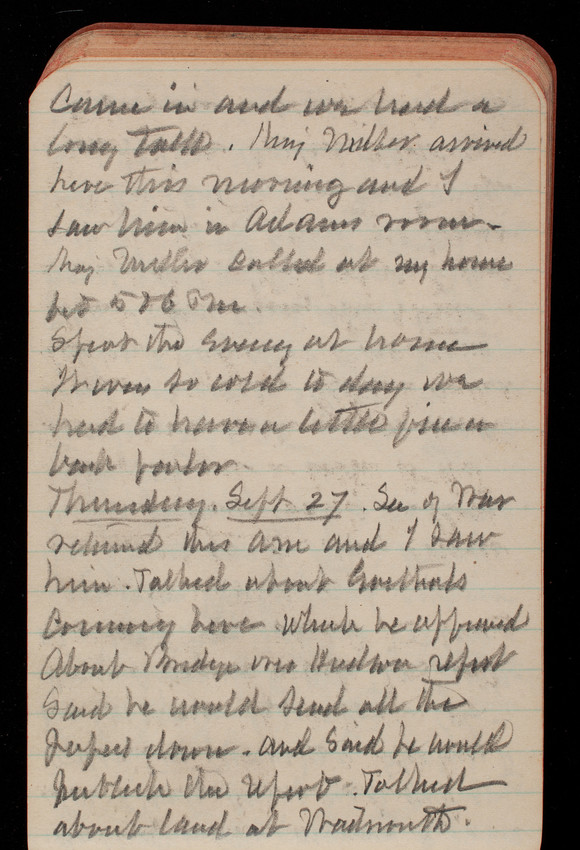 Came in and we had a
long talk. Maj Miller arrived
here this morning and I
saw him in Adams room.
Maj Miller called at my house
bet 5 & 6 P.m.
Spent the Evening at home
It was so cold to day we
had to have a little fire in
back parlor.
Thursday. Sept 27. Sec of War
returned this a.m and I saw
him. Talked about Goethals
Coming here which he approved
About Bridge over Hudson report
Said he would send all the
papers down. and said he would
publish the report. Talked
about land at Wadsworth.